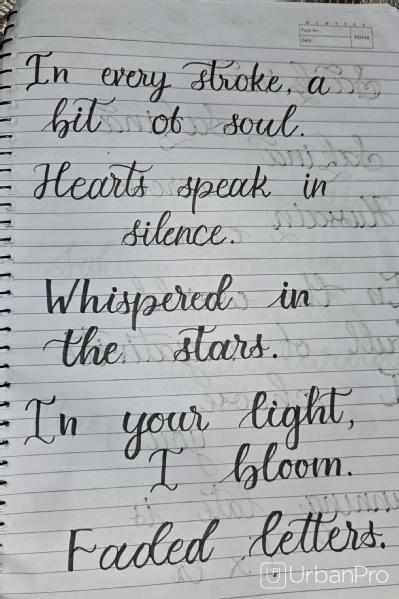 YOUVA
In every stroke, a
bit of soul.
Hearts speak in
silence.
Whispered in
the stars.
In your light,
I bloom.
Faded letters.
UrbanPro